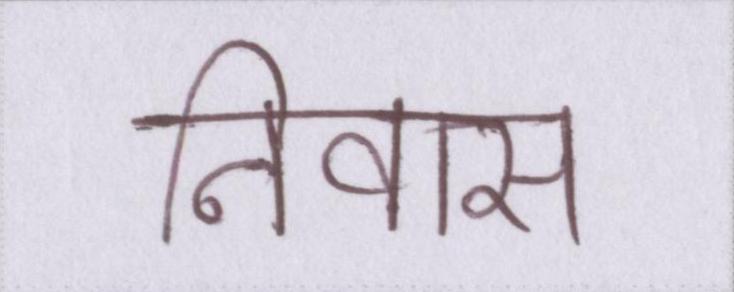 निवास